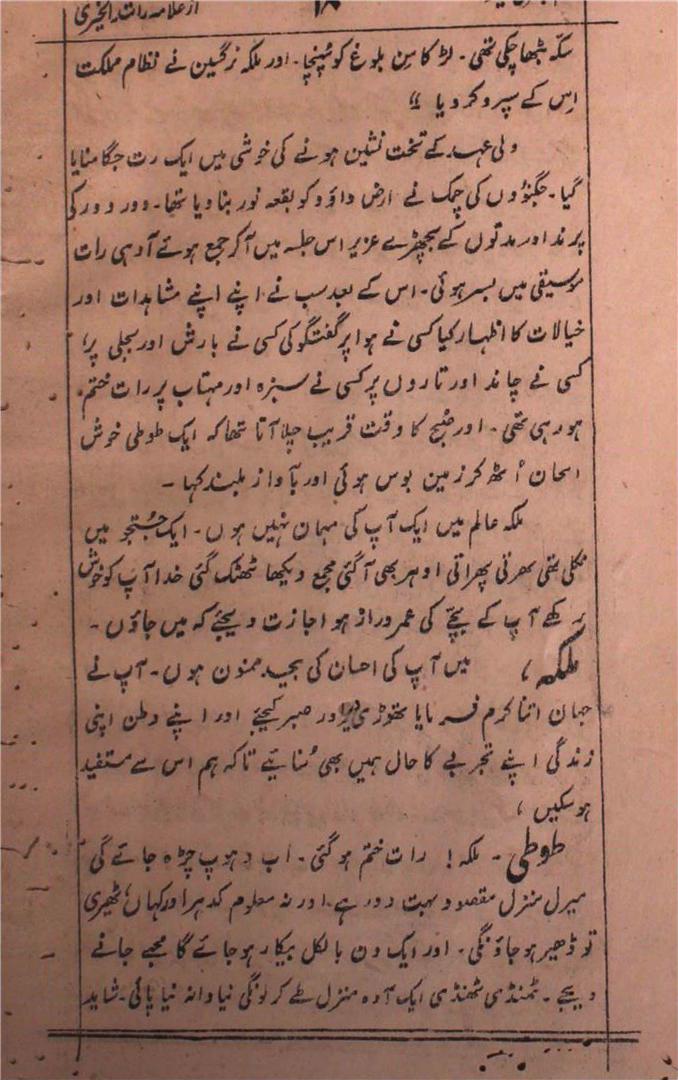 از علامہ راشد الخیری
سکہ بٹھا چکی تھی۔ لڑکا سن بلوغ کو پہنچا۔ اور ملکہ نرگسین نے نظام مملکت
اس کے سپرو کر دیا ؛؛
ولی عہد کے تخت نشین ہونے کی خوشی میں ایک رت جگا منایا
گیا۔ جگنؤوں کی چمک نے ارض داؤد کو بقعہ نور بنا دیا تھا۔ دور دور کی
پرند اور مدتوں کے بچھڑے عزیز اس جلسہ میں آکر جمع ہوئے آدہی رات
موسیقی میں بسر ہوئی۔ اس کے بعد سب نے اپنے اپنے مشاہدات اور
خیالات کا اظہار کیا کسی نے ہوا پر گفتگو کی کسی نے بارش اور بجلی پر،
کسی نے چاند اور تاروں پر کسی نے سبزہ اور مہتاب پر رات ختم
ہو رہی تھی۔ اور صُبح کا وقت قریب چلا آتا تھا کہ ایک طوطی خوش
الحان اُٹھ کر زمین بوس ہوئی اور بآواز بلند کہا۔
ملکہ عالم میں ایک آپ کی مہان نہیں ہوں۔ ایک جُستجو میں
نکلی تھی بھرتی پھراتی اوہر بھی آگئی مجمع دیکھا ٹھٹک گئی خدا آپ کو خوش
رکھے آپ کے بچے کی عمر دراز ہو اجازت دیجئے کہ میں جاؤں۔
ملکہ، میں آپ کی احسان کی بیحد ممنون ہوں۔ آپ نے
جہان اتنا کرم فرمایا تھوڑی دیر اور صبر کیجئے اور اپنے وطن اپنی
زندگی اپنے تجربے کا حال ہمیں بھی سُنائیے تاکہ ہم اس سے مستفید
ہو سکیں ،
طوطی۔ ملکہ! رات ختم ہو گئی۔ اب دہوپ چڑہ جائے گی
میرل منزل مقصود بہت دور ہے۔ اور نہ معلوم کدہر اور کہاں، ٹھیری
تو ڈھیر ہو جاؤنگی۔ اور ایک دن بالکل بیکار ہو جائے گا مجھے جانے
دیجے۔ ٹھنڈی ٹھنڈی ایک آدہ منزل طے کر لونگی نیا دانہ نیا پانی۔ شاید